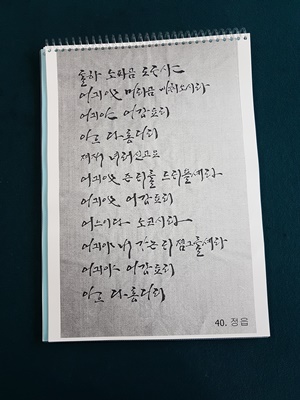 돌하 노피곰 도드샤
어긔야 머리곰 비취오시라
어긔야 어강됴리
아으 다롱디리
져재 녀러신고요
어긔야 즌 디를 드디욜셰라
어긔야 어강됴리
어느이다 노코시라
어긔야 내 가논 디 졈그를셰라
어긔야 어강됴리
아으 다롱디리
40. 정읍